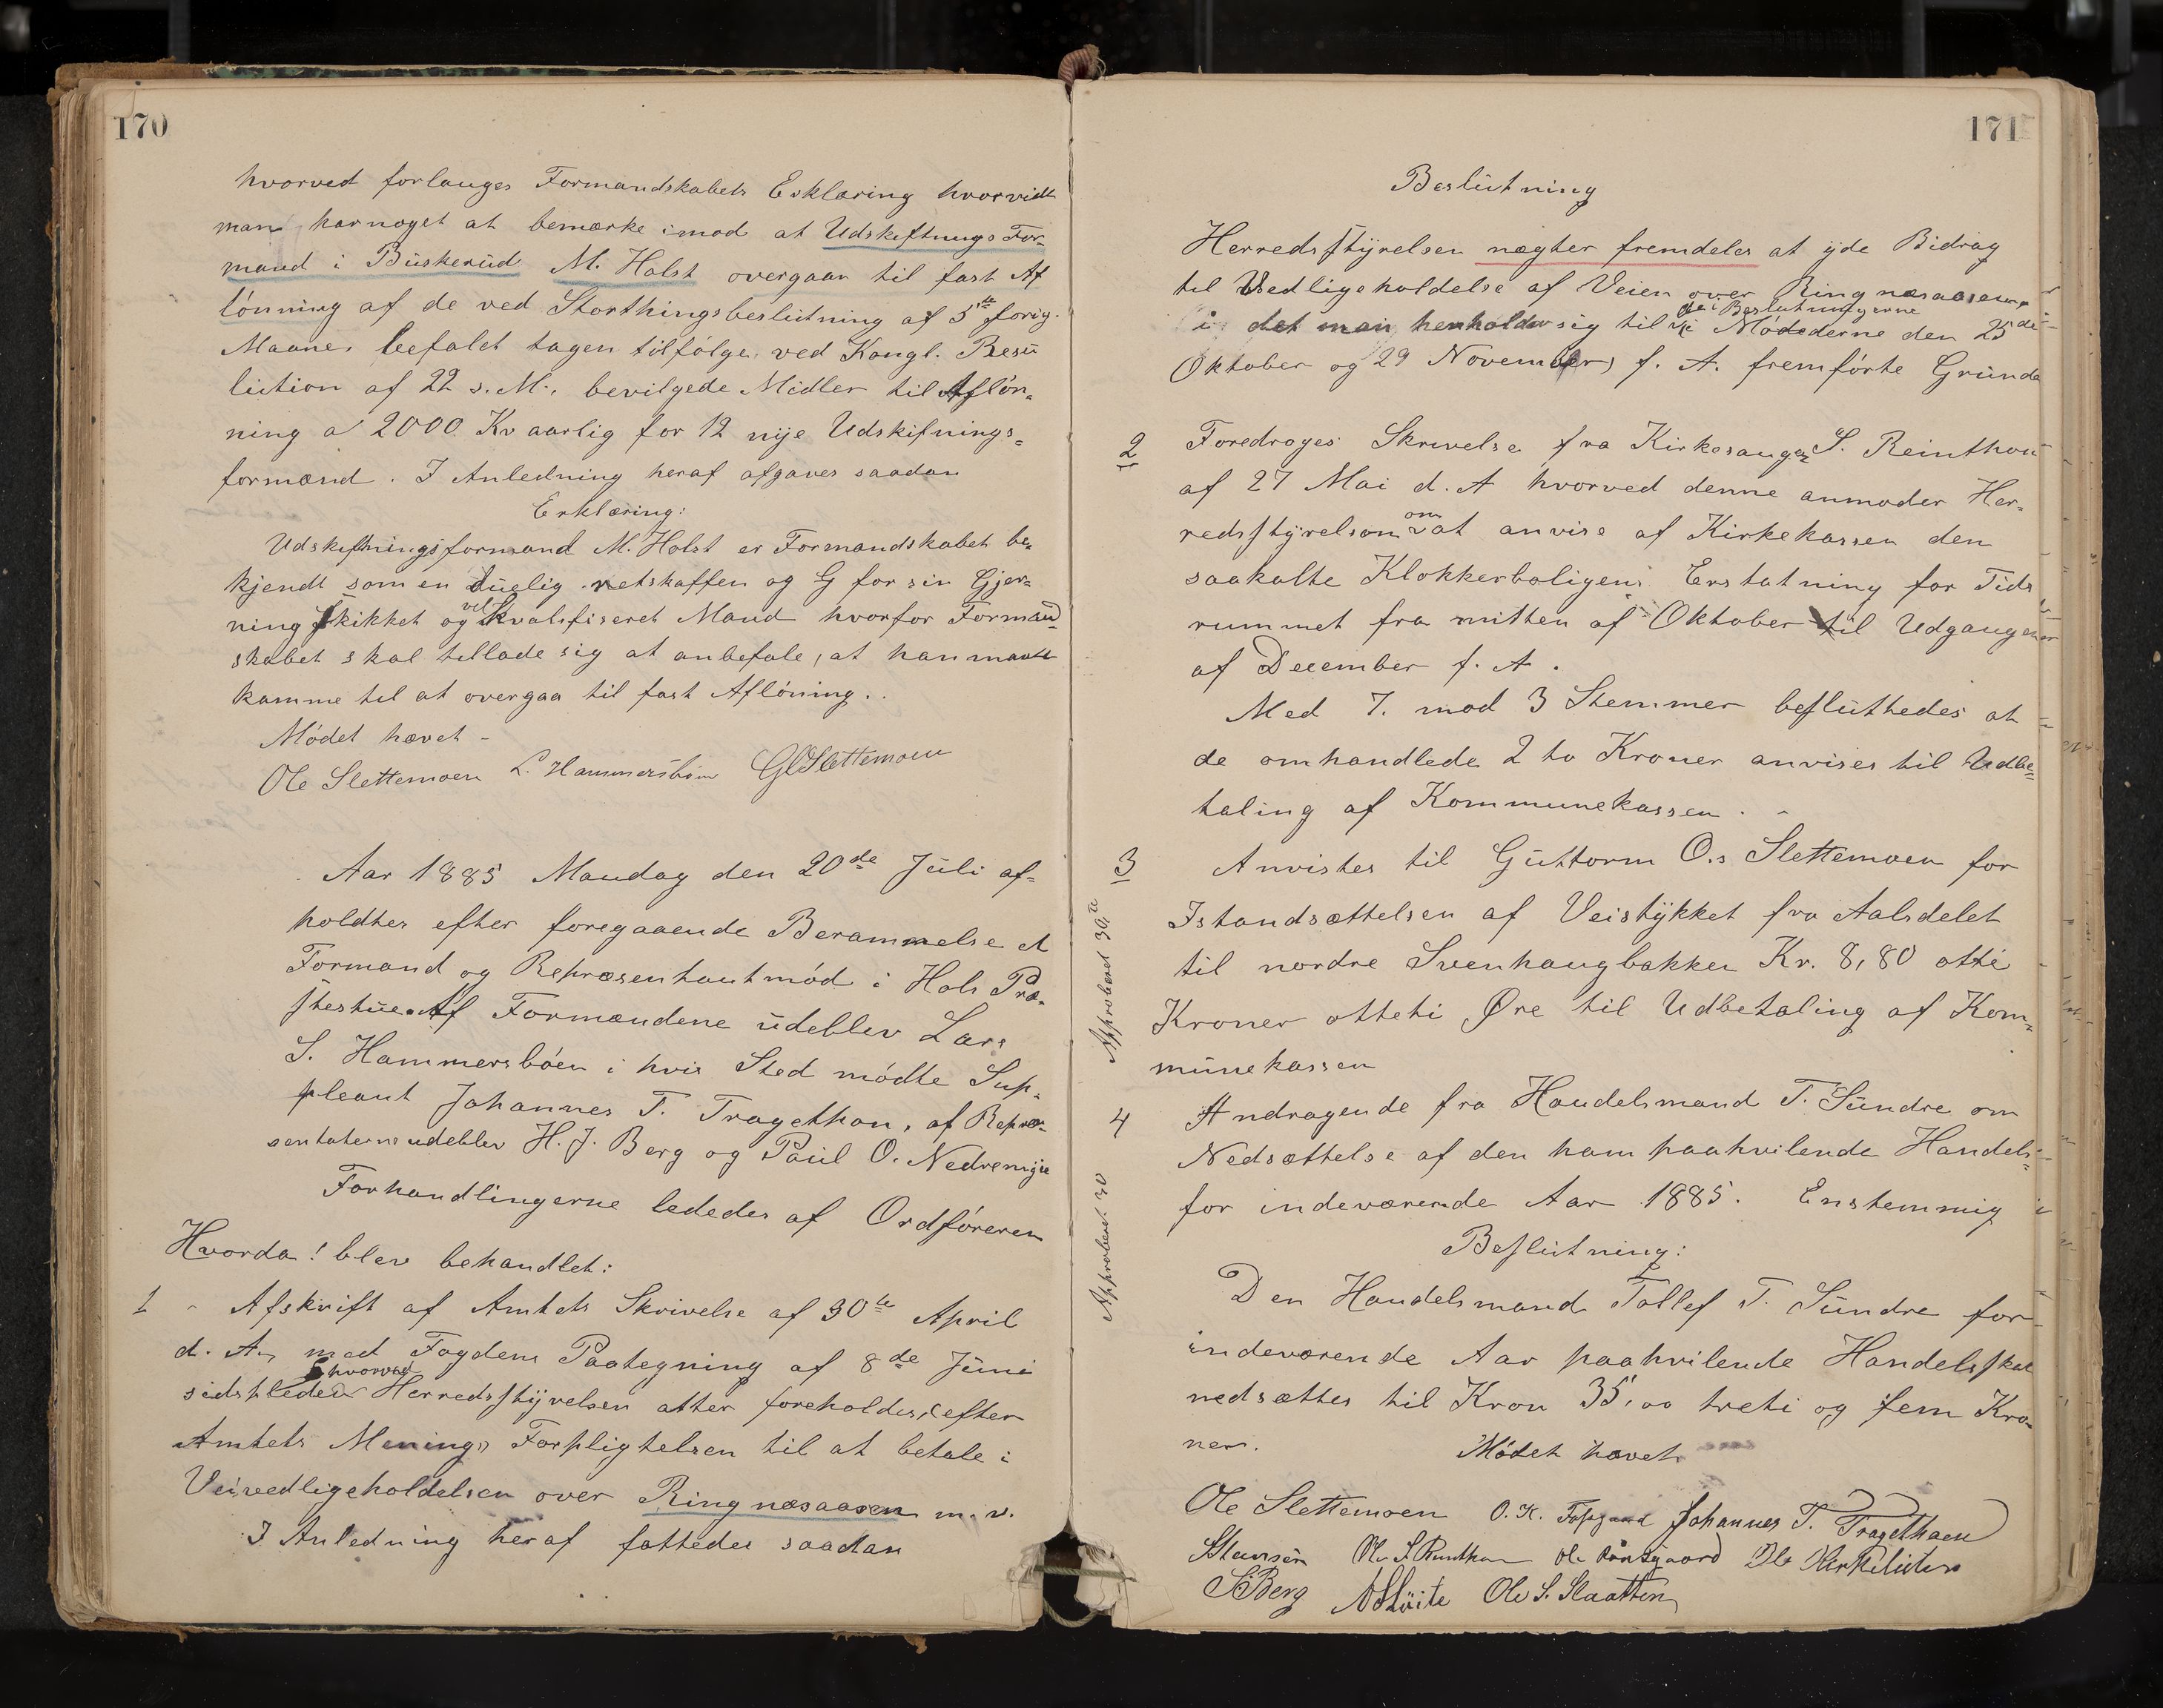 170
hvorved forlanges Formandskabets Erklæring hvorvidt
man har noget at bemærke imod at Udskiftnings For-
mand i Buskerud M. Holst overgaar til fast Af
lønning af de ved Storthingsbeslutning af 5te forig.
Maane. befalet tagen tilfølge, ved Kongl. Resu
lution af 22 s. M., bevilgede Midler til Afløn-
ning a 2000 Kr aarlig for 12 nye Udskifnings-
formænd. I Anledning heraf afgaves saadan
Erklæring:
Udskiftningsformand M. Holst er Formandskabet be-
kjendt som en duelig retskaffen og for sin Gjer-
ning skikket og vel kvalifiseret Mand hvorfor Formand
skabet skal tillade sig at anbefale, at han maatte
komme til at overgaa til fast Afløning.
Mødet hævet -
Ole Slettemoen L. Hammersbøen G O Slettemoen
Aar 1885 Mandag den 20de Juli af-
holdtes efter foregaaende Berammelse et
Formand og Repræsentantmød i Hols Præ-
stestue. Af Formændene udeblev Lars
S. Hammersbøen i hvis Sted mødte Sup-
pleant Johannes T. Tragethon, af Repræ-
sentaterne udeblev H. J. Berg og Paul O. Nedremyr
Forhandlingerne lededes af Ordføreren
Hvorda! blev behandlet:
1 - Afskrift af Amtets Skrivelse af 30te April
d. A., med Fogdens Paategning af 8de Juni
sidstleden hvorved Herredsstyrelsen atter foreholdes, (efter
Amtets Mening) Forpligtelsen til at betale i
Veivedligeholdelsen over Ringnæsaasen m. v.
I Anledning heraf fattedes saadan
171
Beslutning
Herredsstyrelsen nægter fremdeles at yde Bidrag
til Vedligeholdelse af Veien over Ringnæsaasen,
i det man henholder sig til de i Beslutningerne i Møderne den 25de
Oktober og 29 November f. A. fremførte Grunde
2 Foredroges Skrivelse fra Kirkesanger S. Reinthon
af 27 Mai d. A hvorved denne anmoder Her-
redsstyrelsen om at anvise af Kirkekassen den
saakalte Klokkerboligens Erstatning for Tids
rummet fra mitten af Oktober til Udgangen
af December f. A.
Med 7. mod 3 Stemmer besluttedes at
de omhandlede 2 to Kroner anvises til Udbe-
taling af Kommunekassen.
3 Anvistes til Guttorm O.s Slettemoen for
Istandsættelsen af Veistykket fra Aalsdelet
til nordre Svenhaugbakken Kr. 8,80 otte
Kroner otteti Øre til Udbetaling af Kom-
munekassen
Approberet 30te
4 Andragende fra Handelsmand T. Sundre om
Nedsættelse af den ham paahvilende Handels-
for indeværende Aar 1885. Enstemmig
Beslutning:
Approberet 30
Den Handelsmand Tollef T. Sundre for
indeværende Aar paahvilende Handelsskat
nedsættes til Kron 35,00 treti og fem Kro-
ner.
Mødet hævet
Ole Slettemoen O. K. Johannes T. Tragethaen
Ole S. Reinthon Ole
Berg Ole S. Slaatten